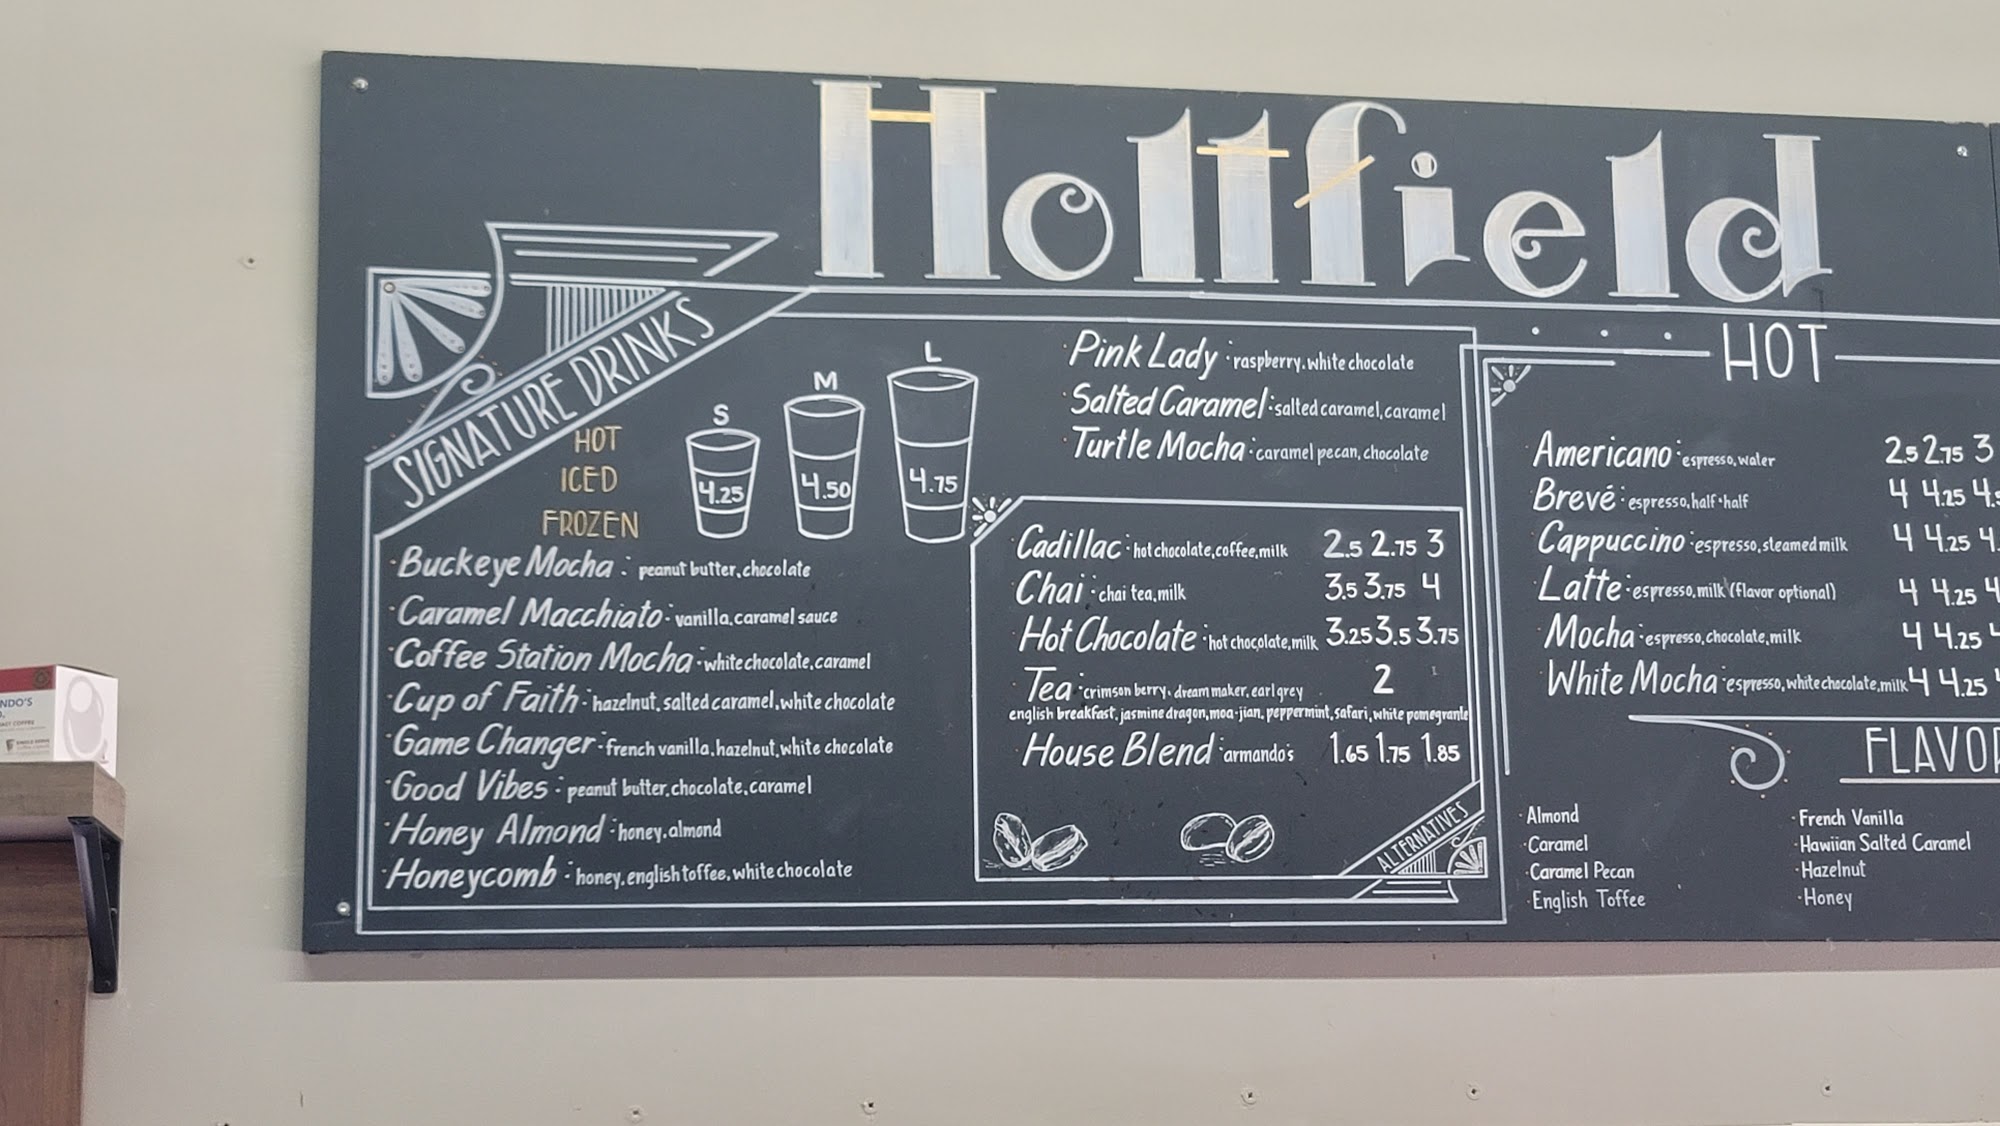 Holtfield
SIGNATURE DRINKS
HOT
ICED
FROZEN
S
M
L
4.25
4.50
4.75
· Buckeye Mocha : peanut butter, chocolate
· Caramel Macchiato · vanilla, caramel sauce
· Coffee Station Mocha · white chocolate, caramel
· Cup of Faith · hazelnut, salted caramel, white chocolate
· Game Changer · french vanilla, hazelnut, white chocolate
· Good Vibes · peanut butter, chocolate, caramel
· Honey Almond · honey, almond
· Honeycomb · honey, english toffee, white chocolate
· Pink Lady · raspberry, white chocolate
· Salted Caramel · salted caramel, caramel
· Turtle Mocha · caramel pecan, chocolate
· Cadillac · hot chocolate, coffee, milk 2.5 2.75 3
· Chai · chai tea, milk 3.5 3.75 4
· Hot Chocolate · hot chocolate, milk 3.25 3.5 3.75
· Tea · crimson berry, dream maker, earl grey 2
english breakfast, jasmine dragon, moa-jian, peppermint, safari, white pomegrante
· House Blend · armando's 1.65 1.75 1.85
ALTERNATIVES
HOT
· Americano · espresso, water 2.5 2.75 3
· Brevé · espresso, half·half 4 4.25
· Cappuccino · espresso, steamed milk 4 4.25
· Latte · espresso, milk (flavor optional) 4 4.25
· Mocha · espresso, chocolate, milk 4 4.25
· White Mocha · espresso, white chocolate, milk 4 4.25
FLAVO
· Almond
· Caramel
· Caramel Pecan
· English Toffee
· French Vanilla
· Hawiian Salted Caramel
· Hazelnut
· Honey
NDO'S